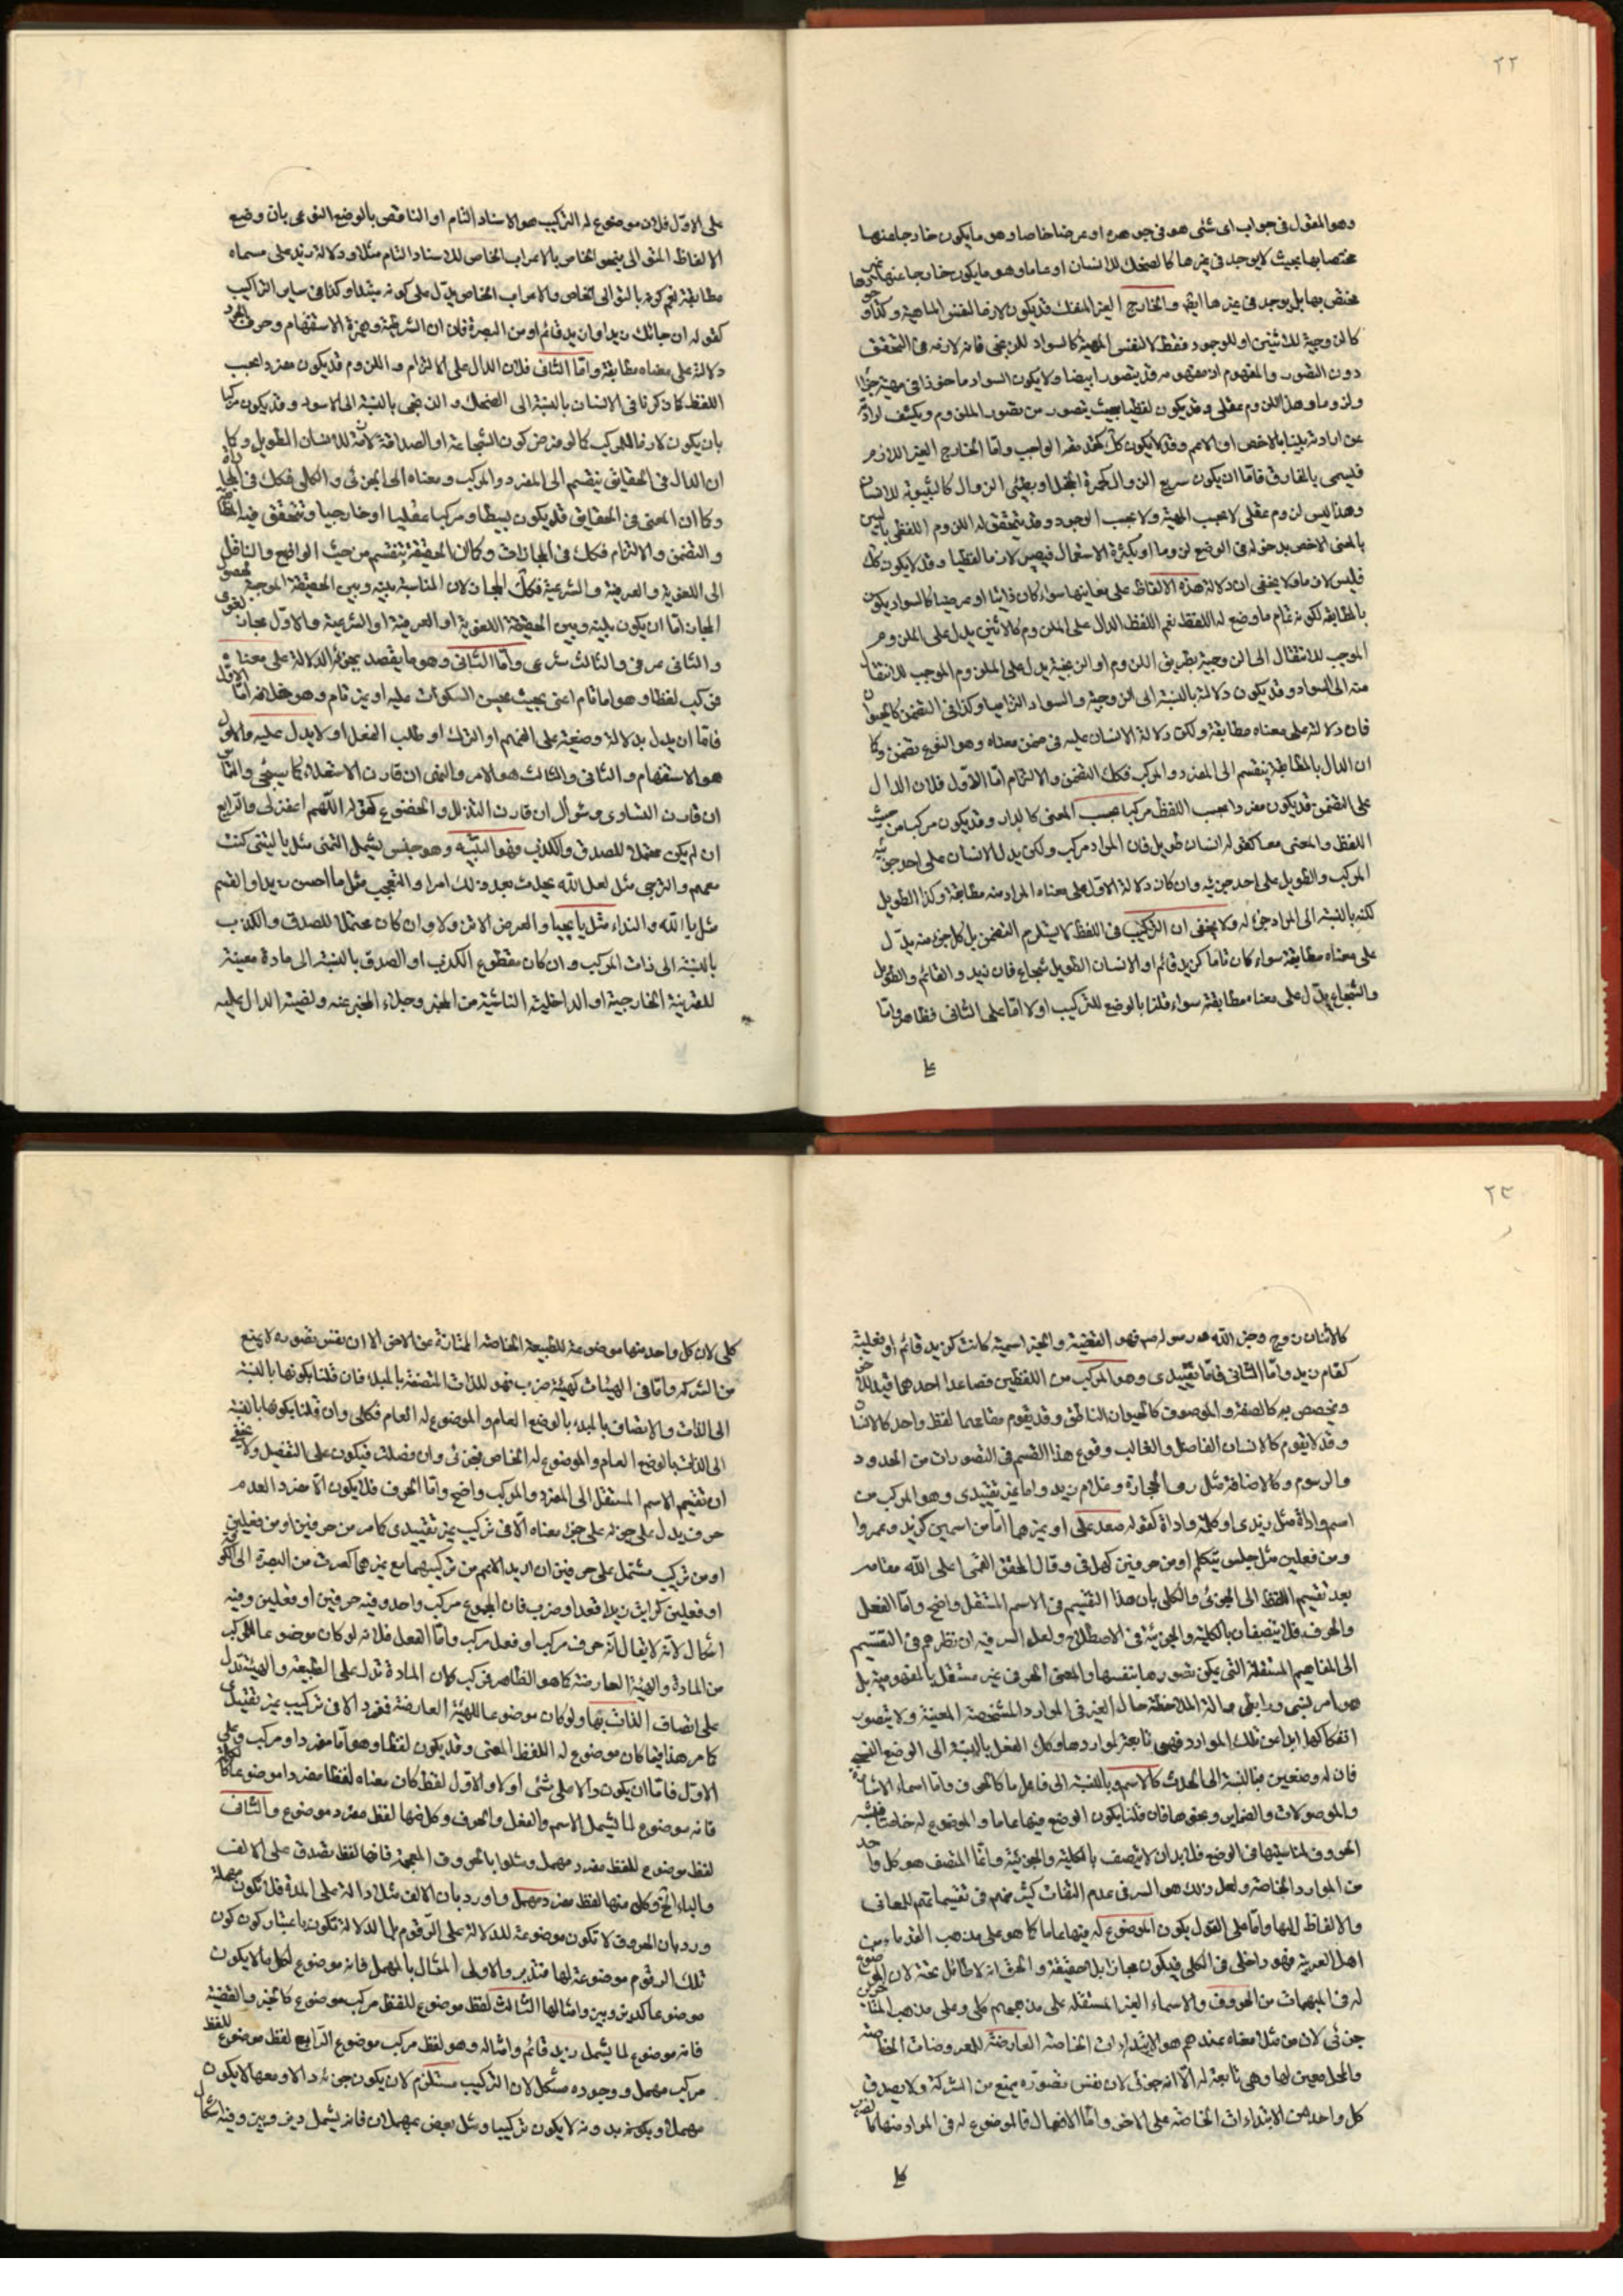 ٢٢
وهو المقول فى جواب اى شئى هو فى جوهره او عرضا خاصا وهو ما يكون خارجا عنها
مختصا بها بحيث لا يوجد فى غيرها كالضحك للانسان او عاما وهو ما يكون خارجا عنها غير
مختص بها بل يوجد فى غيرها ايضا والخارج الغير المنفك قد يكون لازما لنفس الماهية وكذا
كالزوجية للاثنين او للوجود فقط لا لنفس المهية كالسواد للزنجى فانه لازمه فى التحقق
دون التصور والمفهوم اذ مفهومه قد يتصور ابيضا ولا يكون السواد ماخوذا فى مهيته جزءا
ولزوما وهذا اللزوم عقلى وقد يكون لفظيا بحيث يتصور من تصور الملزوم ويكشف ارادة
عن ارادته بينا بالاخص او الاعم وقد لا يكون كك واما الخارج الغير اللازم
فيسمى بالمفارق فاما ان يكون سريع الزوال كحمرة الخجل او بطئى الزوال كالشيبوبة للانسان
وهذا ليس لزوم عقلى لا بحسب المهية ولا بحسب الوجود وقد يتحقق له اللزوم اللفظى بالبين
بالمعنى الاخص بدخوله فى الوضع لزوما او بكثرة الاستعمال فيصير لازما لفظيا وقد لا يكون كك
فليس لازما ولا يخفى ان دلالة هذه الالفاظ على معانيها سواء كان ذاتيا او عرضيا كالسواد يكون
بالمطابقة لكونه تمام ما وضع له اللفظ نعم اللفظ الدال على الملزوم كالاثنين يدل على الملزوم
الموجب للانتقال الى الزوجية بطريق اللزوم او الزنجية يدل على الملزوم الموجب للانتقال
منه الى السواد وقد يكون دلالة بالنسبة الى الزوجية والسواد التزاميا وكذا فى التضمن كالحيوان
فان دلالته على معناه مطابقة ولكن دلالة الانسان عليه فى ضمن معناه وهو النوع تضمن وكما
ان الدال بالمطابقة ينقسم الى المفرد والمركب فكك التضمن والالتزام اما الاول فلان الدال
على التضمن قد يكون مفردا بحسب اللفظ مركبا بحسب المعنى كالدار وقد يكون مركبا من حيث
اللفظ والمعنى معا كقوله انسان طويل فان المراد مركب ولكن يدل الانسان على احد جزئيه
المركب والطويل على احد جزئيه وان كان دلالة الاول على معناه المراد منه مطابقة وكذا الطويل
لكنه بالنسبة الى المراد جزء له ولا يخفى ان التركيب فى اللفظ لا يستلزم التضمن بل كل جزء منه يدل
على معناه مطابقة سواء كان تاما كزيد قائم او الانسان الطويل شجاع فان زيد والقائم والطويل
والشجاع يدل على معناه مطابقة سواء قلنا بالوضع للتركيب او لا اما على الثانى فظاهر واما
على الاول فلان موضوع له التركيب هو الاسناد التام او الناقص بالوضع النوعى بان وضع
الالفاظ المتوالى بنحو الخاص بالاعراب الخاص للاسناد التام مثلا ودلالة زيد على مسماه
مطابقة نعم كونه بالتوالى الخاص والاعراب الخاص يدل على كونه مبتدا وكذا فى ساير التراكيب
كقوله ان جائك زيد او ان زيد قائم او من البصرة فان ان الشرطية وهمزة الاستفهام وحرف الجر
دلالة على معناه مطابقة واما الثانى فلان الدال على الالتزام واللزوم قد يكون مفردا بحسب
اللفظ كما ذكرنا فى الانسان بالنسبة الى الضحك والزنجى بالنسبة الى الاسود وقد يكون مركبا
بان يكون لازما للمركب كالو فرض كون الشجاعة او الصداقة لازمة للانسان الطويل وكما
ان الدال فى الحقايق ينقسم الى المفرد والمركب ومعناه الى الجزئى والكلى فكك فى المجازات
وكما ان المعنى فى الحقايق قد يكون بسيطا ومركبا عقليا او خارجيا وتتحقق فيه المطابقة
والتضمن والالتزام فكك فى المجازات وكما ان الحقيقة تنقسم من حيث الواضع والناقل
الى اللغوية والعرفية والشرعية فكك المجاز لان المناسبة بينه وبين الحقيقة الموجبة لحصول
المجاز اما ان يكون بينه وبين الحقيقة اللغوية او العرفية او الشرعية والاول مجاز لغوى
والثانى عرفى والثالث شرعى واما الثانى وهو ما يقصد بجزئه الدلالة على معناه
فمركب لفظا وهو اما تام اعنى بحيث يحسن السكوت عليه او غير تام وهو خلافه اما الاول
فاما ان يدل بدلالة وضعية على الفهم او الترك او طلب الفعل او لا يدل عليه والاول
هو الاستفهام والثانى والثالث هو الامر والنهى ان قارن الاستعلاء كما سيجئ والتماس
ان قارن التساوى وسؤال ان قارن التذلل والخضوع كقوله اللهم اغفر لى والرابع
ان لم يكن محتملا للصدق والكذب فهو التنبيه وهو جنس يشمل التمنى مثل يا ليتنى كنت
معهم والترجى مثل لعل الله يحدث بعد ذلك امرا والتعجب مثل ما احسن زيدا والقسم
مثل بالله والنداء مثل يا يحيى والعرض الا تنزل وان كان محتملا للصدق والكذب
بالنسبة الى ذات المركب وان كان مقطوع الكذب او الصدق بالنسبة الى مادة معينة
للقرينة الخارجية او الداخلية الناشئة من المخبر وجلاء المخبر عنه ونفسية الدال عليه
٢٣
كالاثنان زوج وجل الله ورسوله فهو القضية والخبر اسمية كانت كزيد قائم او فعلية
كقام زيد واما الثانى فاما تقييدى وهو المركب من اللفظين فصاعدا احدهما قيد للاخر
وتخصص به كالصفة والموصوف كالحيوان الناطق وقد يقوم مقامهما لفظ واحد كالانسان
وقد لا يقوم كالانسان الفاضل والغالب وقوع هذا القسم فى التصورات من الحدود
والرسوم وكالاضافة مثل رمى الحجارة وغلام زيد واما غير تقييدى وهو المركب من
اسم واداة مثل زيد فى او كلمة واداة كقوله صعد على او غيرهما اما من اسمين كزيد وعمرو
ومن فعلين مثل جلس يتكلم او من حرفين كهل فى وقال المحقق القمى اعلى الله مقامه
بعد تقسيم اللفظ الى الجزئى والكلى بان هذا التقسيم فى الاسم المستقل واضح واما الفعل
والحرف فلا يتصفان بالكلية والجزئية فى الاصطلاح ولعل السر فيه ان نظرهم فى التقسيم
الى المفاهيم المستقلة التى يمكن تصورها بنفسها والمعنى الحرفى غير مستقل بالمفهومية بل
هو امر نسبى ورابطى وآلة لملاحظة حال الغير فى الموارد المتشخصة المعينة ولا يتصور
انفكاكها ابدا عن تلك الموارد فهى تابعة لمواردها وكك الفعل بالنسبة الى الوضع النسبى
فان له وضعين فبالنسبة الى الحدث كالاسم وبالنسبة الى فاعل ما كالحرف واما اسماء الاشارة
والموصولات والضماير ونحوها فان قلنا يكون الوضع فيها عاما والموضوع له خاصا فيشبه
الحروف لمناسبتها فى الوضع فلا بد ان لا يتصف بالكلية والجزئية وانما المتصف هو كل واحد
من الموارد الخاصة ولعل ذلك هو السر فى عدم التفات كثير منهم فى تقسيماتهم للمعانى
والالفاظ اليها واما على القول بكون الموضوع له فيها عاما كما هو على مذهب القدماء من
اهل العربية فهو داخل فى الكلى فيكون مجازا بلا حقيقة والحق انه لا طائل تحته لان الموضوع
له فى المبهمات من الحروف والاسماء الغير المستقلة على مذهبهم كلى وعلى مذهب المتاخرين
جزئى لان من مثلا معناه عندهم هو الابتداءات الخاصة العارضة للمعروضات الخاصة
والمحل معين لها وهى تابعة له الا انه جزئى لان نفس تصوره يمنع من الشركة ولا يصدق
كل واحد من الابتداءات الخاصة على الاخر واما الافعال فالموضوع له فى المواد منها
كلى لان كل واحد منها موضوعة للطبيعة الخاصة الممتازة عن الاخر الا ان نفس تصوره لا يمنع
من الشركة واما فى الهيئات كهيئة ضرب فهو للذات المتصفة بالمبدء فان قلنا بكونها بالنسبة
الى الذات والاتصاف بالمبدء بالوضع العام والموضوع له العام فكلى وان قلنا بكونها بالنسبة
الى الذات بالوضع العام والموضوع له الخاص فجزئى وان فصلت فيكون على التفصيل ولا يخفى
ان تقسيم الاسم المستقل الى المفرد والمركب واضح واما الحرف فلا يكون الا مفردا لعدم
حرف يدل على جزئه على جزء معناه الا فى تركيب غير تقييدى كما مر من حرفين او من فعلين
او من تركيب مشتمل على حرفين ان اريد الاعم من تركيبهما مع غيرهما كسرت من البصرة الى الكوفة
او فعلين كرايت زيدا قعد او ضرب فان المجموع مركب واحد وفيه حرفين او فعلين وفيه
اشكال لانه لا يقال انه حرف مركب او فعل مركب واما الفعل فلانه لو كان موضوعا للمركب
من المادة والهيئة العارضة كما هو الظاهر فمركب لان المادة تدل على الطبيعة والهيئة تدل
على اتصاف الذات بها ولو كان موضوعا للهيئة العارضة فمفرد الا فى تركيب غير تقييدى
كما مر هذا فيما كان موضوع له اللفظ المعنى وقد يكون لفظا وهو اما مفرد او مركب وعلى
الاول فاما ان يكون دالا على شئى او لا والاول لفظ كان معناه لفظا مفردا موضوعا كالكلمة
فانه موضوع لما يشمل الاسم والفعل والحرف وكل منها لفظ مفرد موضوع والثانى
لفظ موضوع للفظ مفرد مهمل ومثلوا بالحروف المعجمة فانها لفظ تصدق على الالف
والباء الخ وكل منها لفظ مفرد مهمل واورد بان الالف مثلا دالة على المدة فلا تكون مهملة
ورد بان الحروف لا تكون موضوعة للدلالة على الرقوم انما الدلالة تكون باعتبار كون
تلك الرقوم موضوعة لها فتدبر والاولى المثال بالمهمل فانه موضوع لكل ما لا يكون
موضوعا كديز وبين وامثالها الثالث لفظ موضوع للفظ مركب موضوع كالخبر والقضية
فانه موضوع لما يشمل زيد قائم وامثاله وهو لفظ مركب موضوع الرابع لفظ موضوع للفظ
مركب مهمل ووجوده مشكل لان التركيب مستلزم لان يكون جزئه دالا ومعها لا يكون
مهملا وبكونه بدونه لا يكون تركيبا ومثل بعض بمهملان فانه يشمل ديز وبين وفيه اشكال